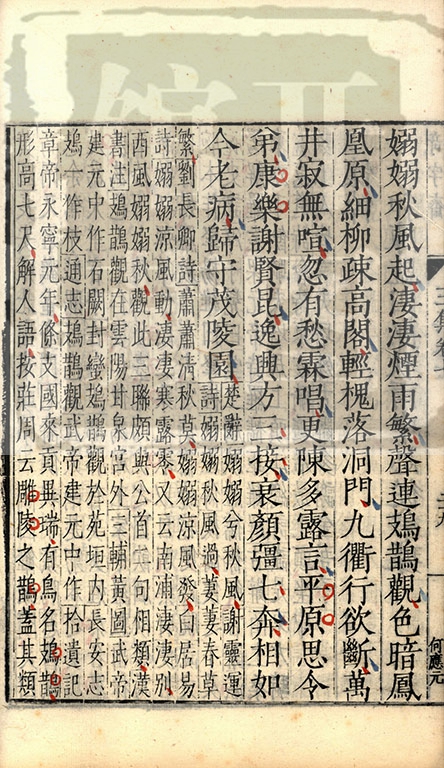 嫋嫋秋風起淒淒煙雨繁聲連鳷鵲觀色暗鳳
凰原細柳疎高閣輕槐落洞門九衢行欲斷萬
井寂無喧忽有愁霖唱更陳多露言平原思令
弟康樂謝賢昆逸興方三接衰顏彊七奔相如
今老病歸守茂陵園楚辭嫋嫋兮秋風謝靈運詩嫋嫋秋風過萋萋春草
繁劉長卿詩蕭蕭清秋莫嫋嫋涼風發白居易
詩嫋嫋涼風動淒淒寒露零又云南浦淒淒別
西風嫋嫋秋觀此三聯頗與公首二句相類漢
書注鳷鵲觀在雲陽甘泉宮外三輔黃圖武帝
建元中作石闕封巒鳷鵲觀於苑垣内長安志
鳷一作枝通志鳷鵲觀武帝建元中作拾遺記
章帝永寧元年條支國來貢異瑞有鳥名鳷鵲
形高七尺解人語按莊周云雕陵之鵲蓋其類
何應元